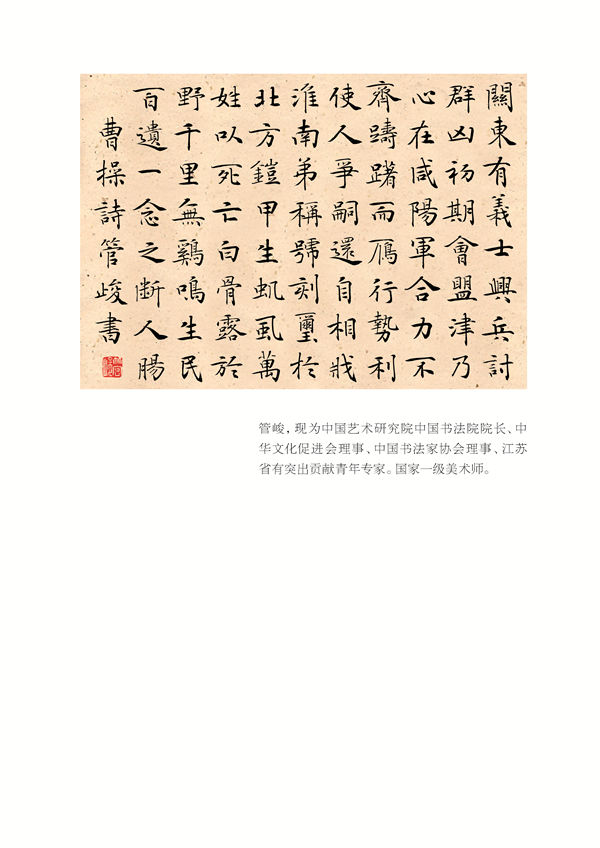 關東有義士興兵討
群凶初期會盟津乃
心在咸陽軍合力不
齊躊躇而鴈行勢利
使人爭嗣還自相戕
淮南弟稱號刻璽於
北方鎧甲生虮虱萬
姓以死亡白骨露於
野千里無鷄鳴生民
百遺一念之断人腸
曹操詩管峻書
管峻，现为中国艺术研究院中国书法院院长、中
华文化促进会理事、中国书法家协会理事、江苏
省有突出贡献青年专家。国家一级美术师。